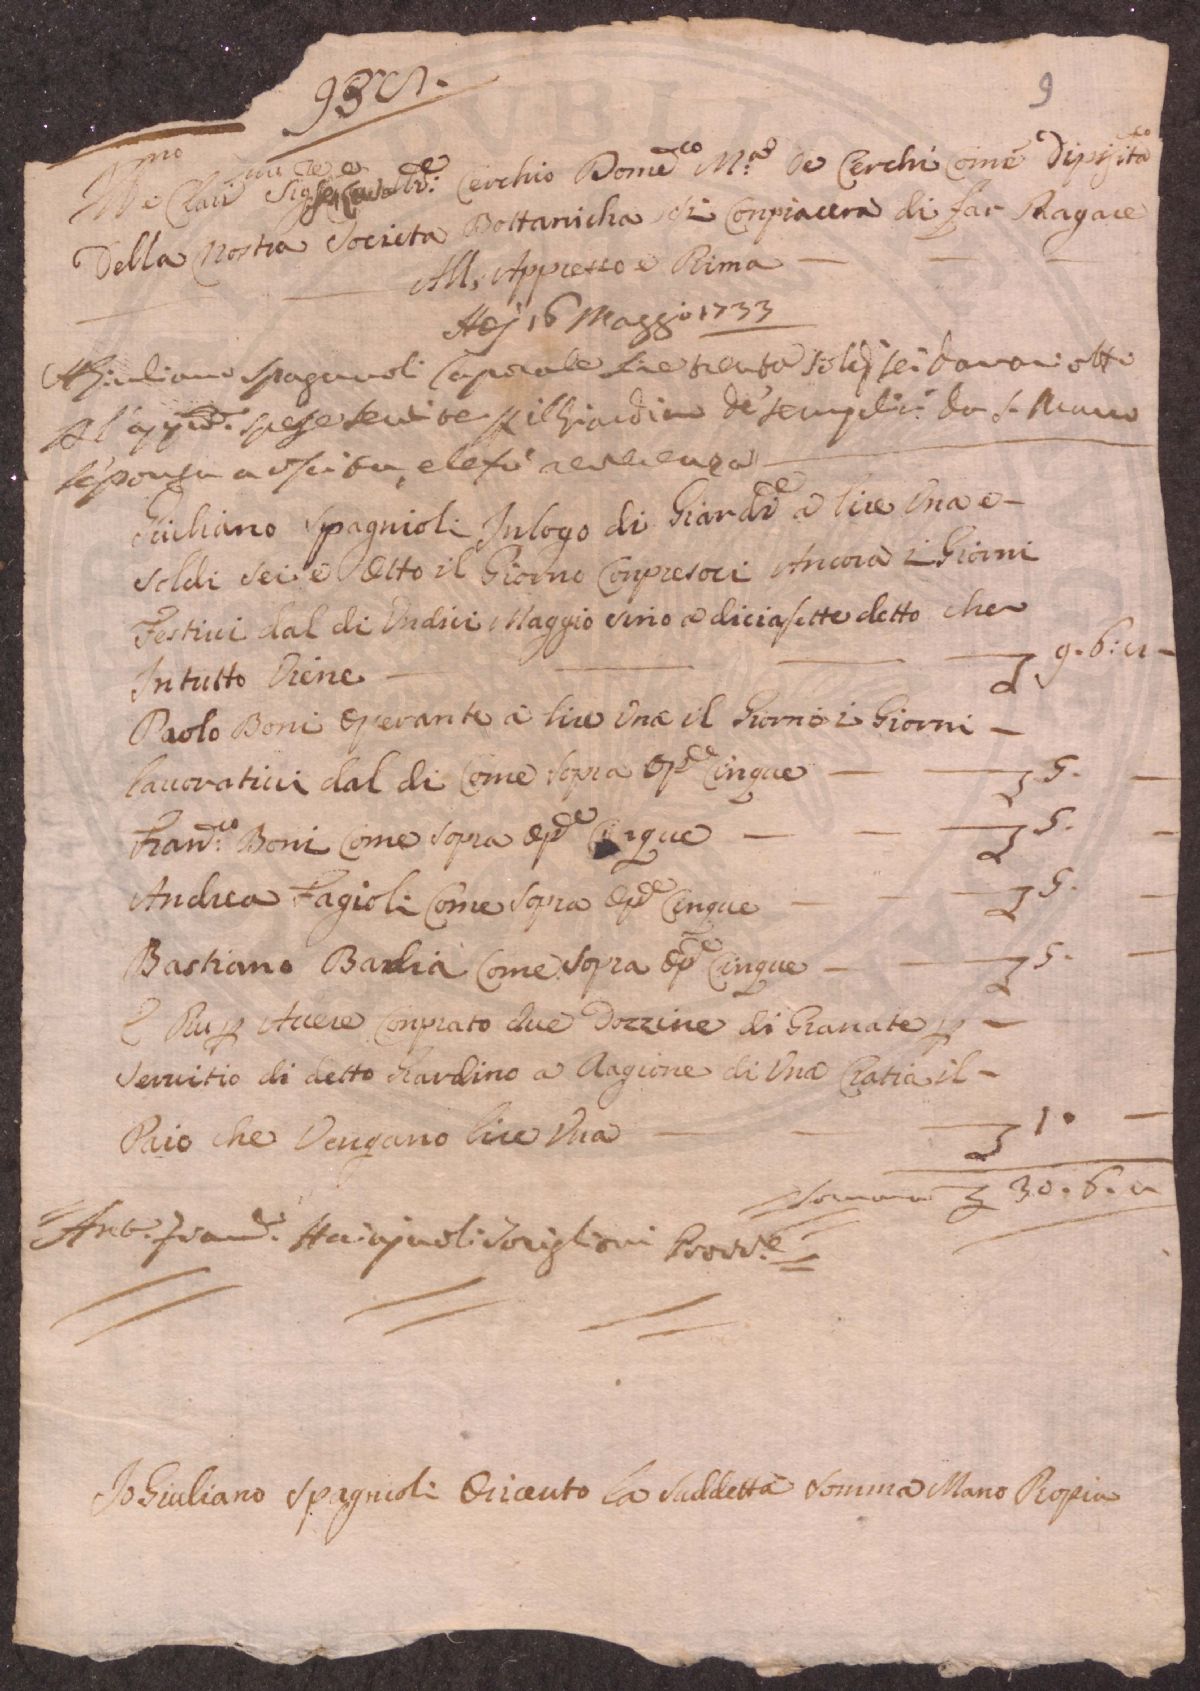 9
Ill.mo e Clari.mo Sig.re Cavall.re Cerchio Dome.co M.a de Cerchi Come Dipisit.o
Della Nostra Societa Bottanicha si Conpiacera di far Pagare
All, Appresso e Prima
Adj 16 Maggio 1733
A Giuliano Spagnuoli Caporale lire trenta soldi sei danari otto
p l'app.e spese servite p il Giardino de semplici da S. Marco
Giuliano Spagnioli Inlogo di Giard.e a lire Una e
Soldi Sei e Otto il Giorno Conpresoci Ancora i Giorni
Festiui dal di Undici Maggio sino a diciasette detto che
In tutto Viene 9.6:8
Paolo Boni Operante a lire Una il Giorno i Giorni
lauoratiui dal di Come Sopra Op.e Cinque 5.
Fran.co Boni Come Sopra Op.e Cinque 5.
Andrea Fagioli Come Sopra Op.e Cinque 5.
Bastiano Barlia Come Sopra Op.e Cinque 5.
E Piu p Auere Conprato due Dozzine di Granate p
Seruitio di detto Giardino a Ragione di Una Cratia il
Paio che Vengano lire Una 1.
Somma 30.6.8
Ant.o Fran.co Acciajuoli Toriglioni Provv.e
Io Giuliano Spagnioli O riceuto la Suddetta Somma Mano Propia